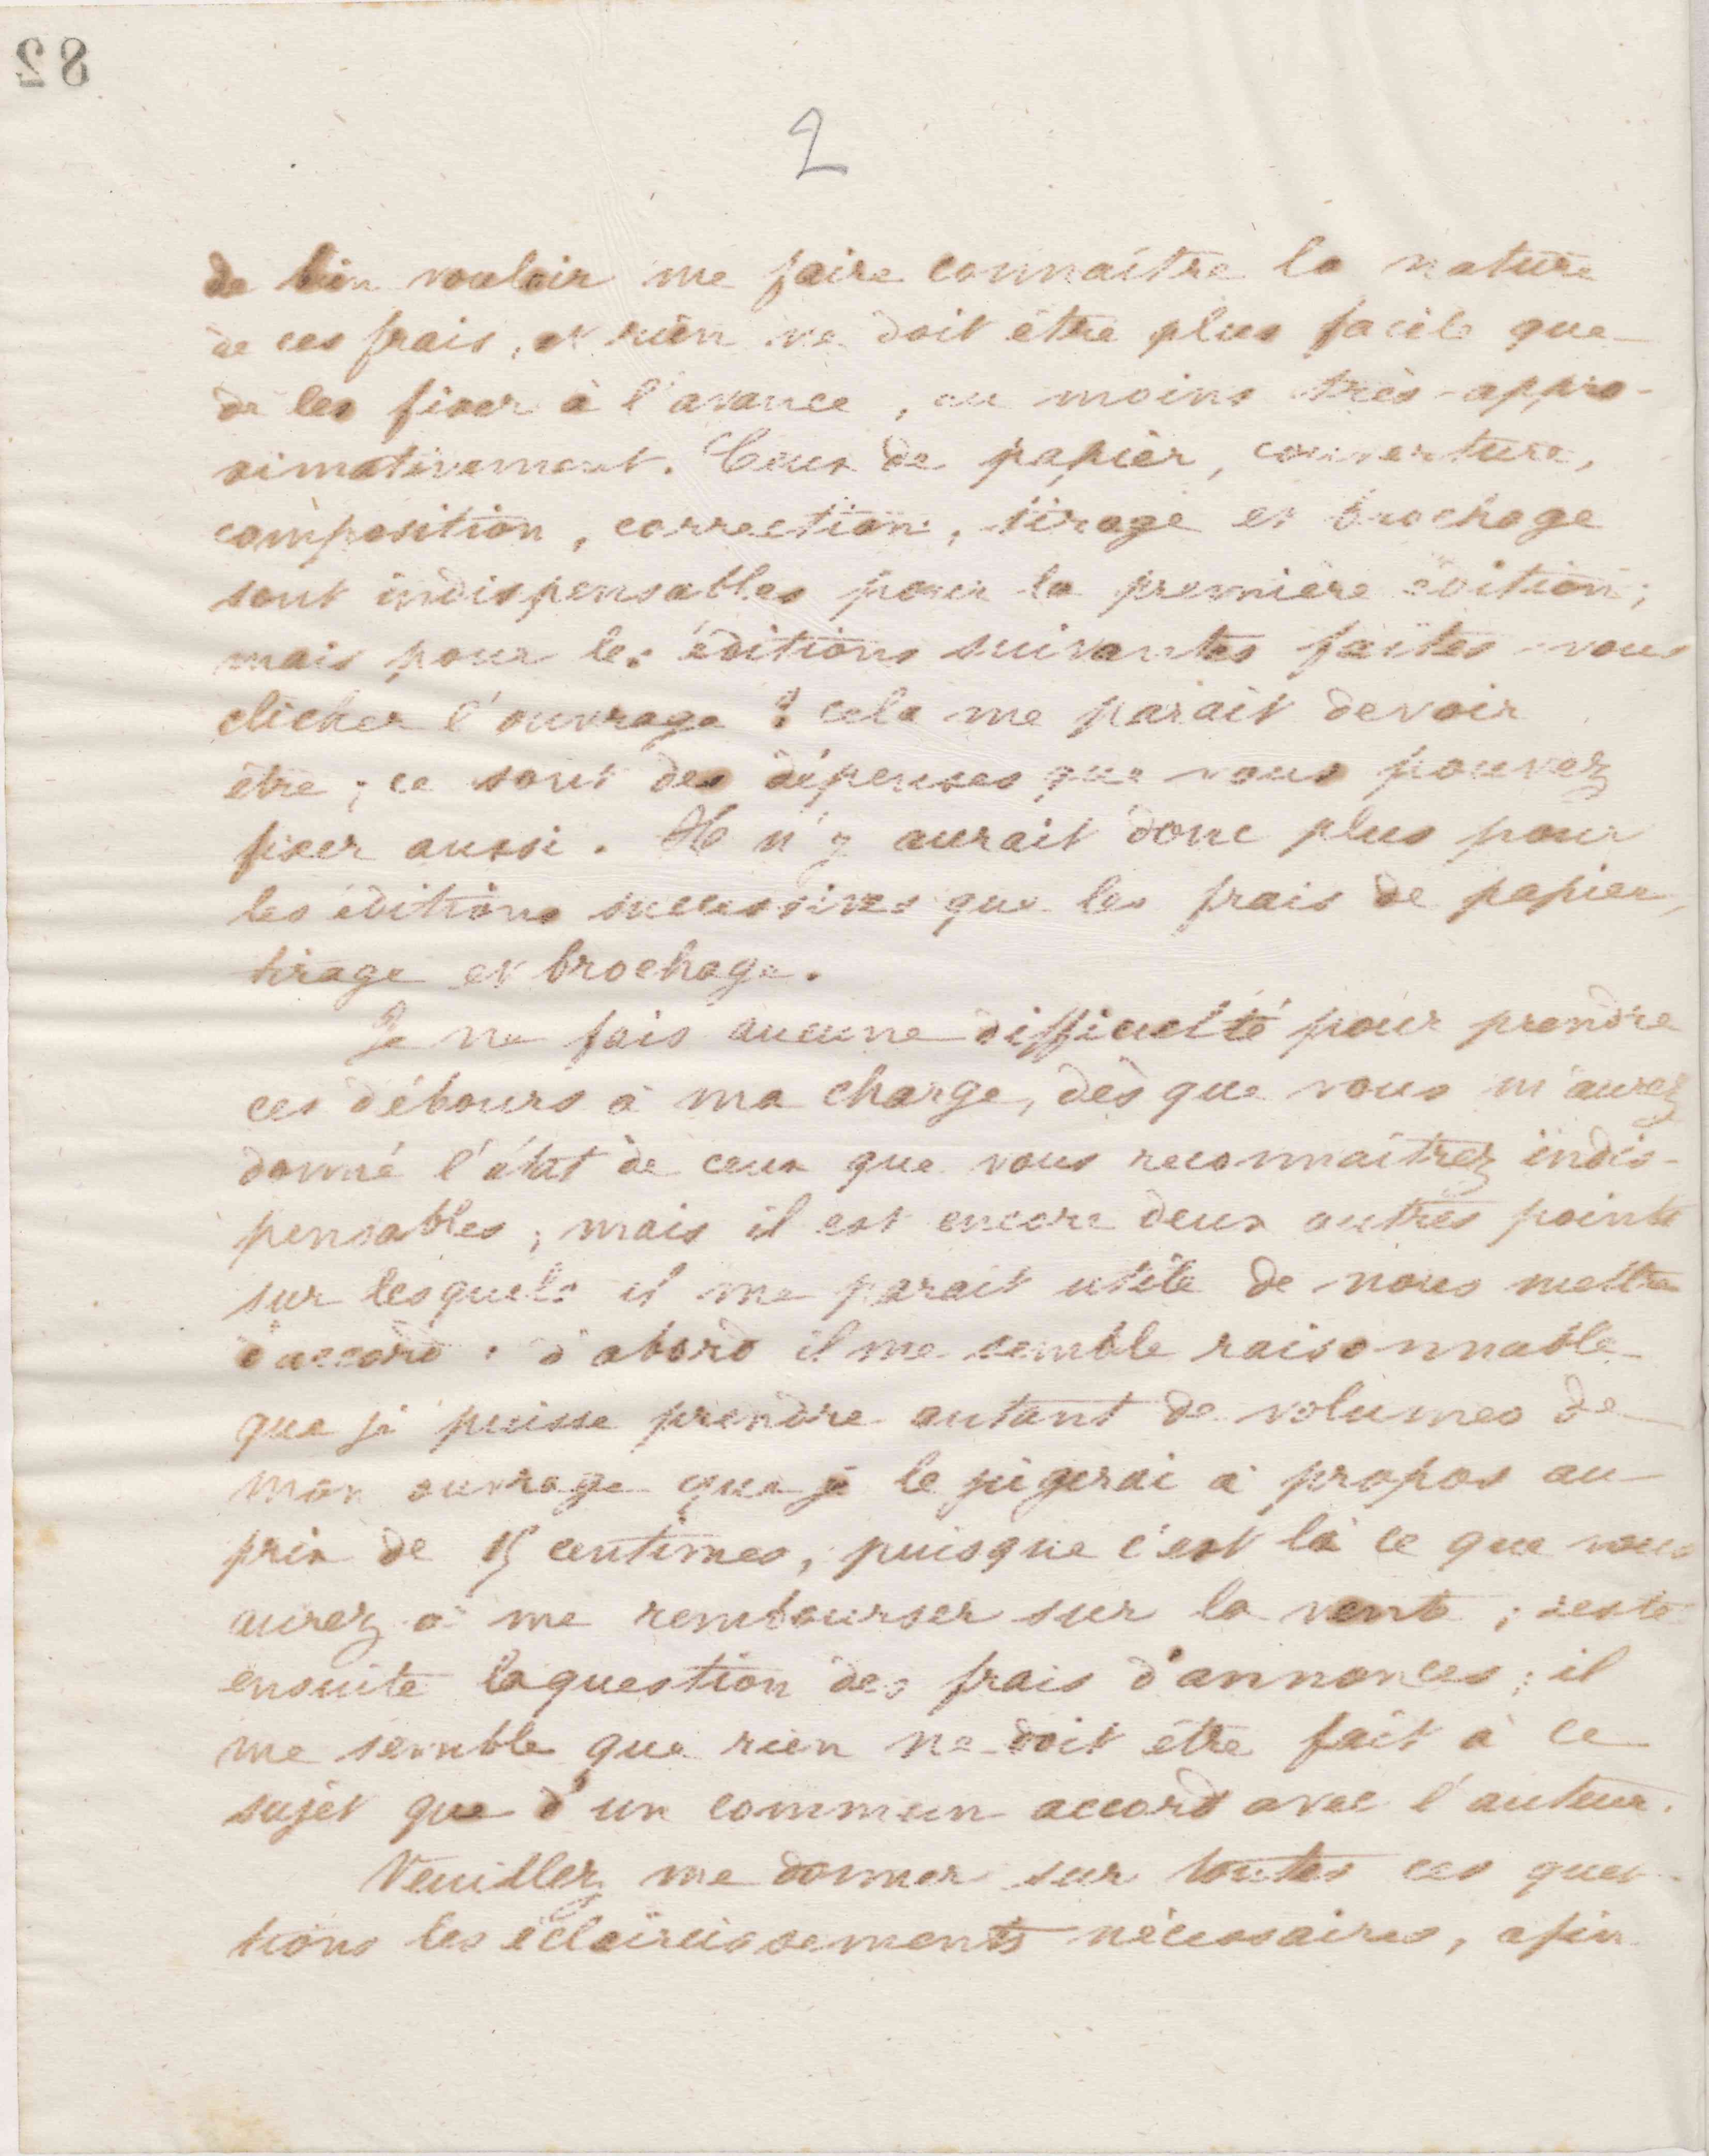 82
2
de bien vouloir me faire connaître la nature
de ces frais, et rien ne doit être plus facile que
de les fixer à l'avance, au moins très-appro-
ximativement. Ceux de papier, couverture,
composition, correction, tirage et brochage
sont indispensables pour la première édition;
mais pour les éditions suivantes faites-vous
clicher l'ouvrage ? cela me parait devoir
être ; ce sont des dépenses que vous pouvez
fixer aussi. Il n'y aurait donc plus pour
les éditions successives que les frais de papier,
tirage et brochage.
Je ne fais aucune difficulté pour prendre
ces débours à ma charge, dès que vous m'aurez
donné l'état de ceux que vous reconnaîtrez indis-
pensables ; mais il est encore deux autres points
sur lesquels il me parait utile de nous mettre
d'accord : d'abord il me semble raisonnable
que je puisse prendre autant de volumes de
mon ouvrage que je le jugerai à propos au
prix de 15 centimes, puisque c'est là ce que vous
aurez à me rembourser sur la vente ; reste
ensuite la question des frais d'annonces ; il
me semble que rien ne doit être fait à ce
sujet que d'un commun accord avec l'auteur.
Veuillez me donner sur toutes ces ques-
tions les éclaircissements nécessaires, afin